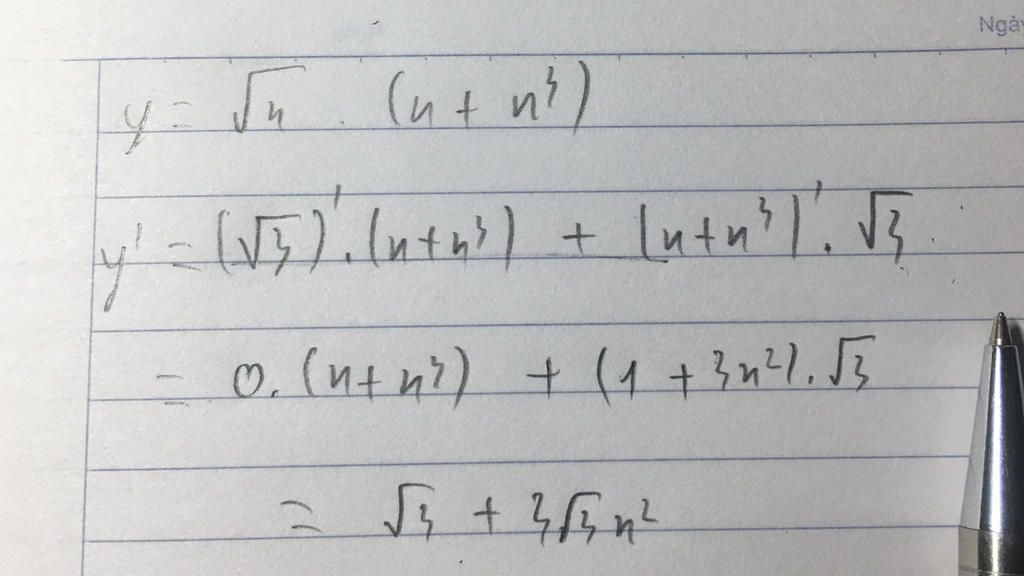 Ngày
y = √x . (x + x³)
y' = (√3)' . (x+x³) + (x+x³)' . √3.
= 0. (x+x³) + (1 + 3x²) . √3
= √3 + 3√3x²